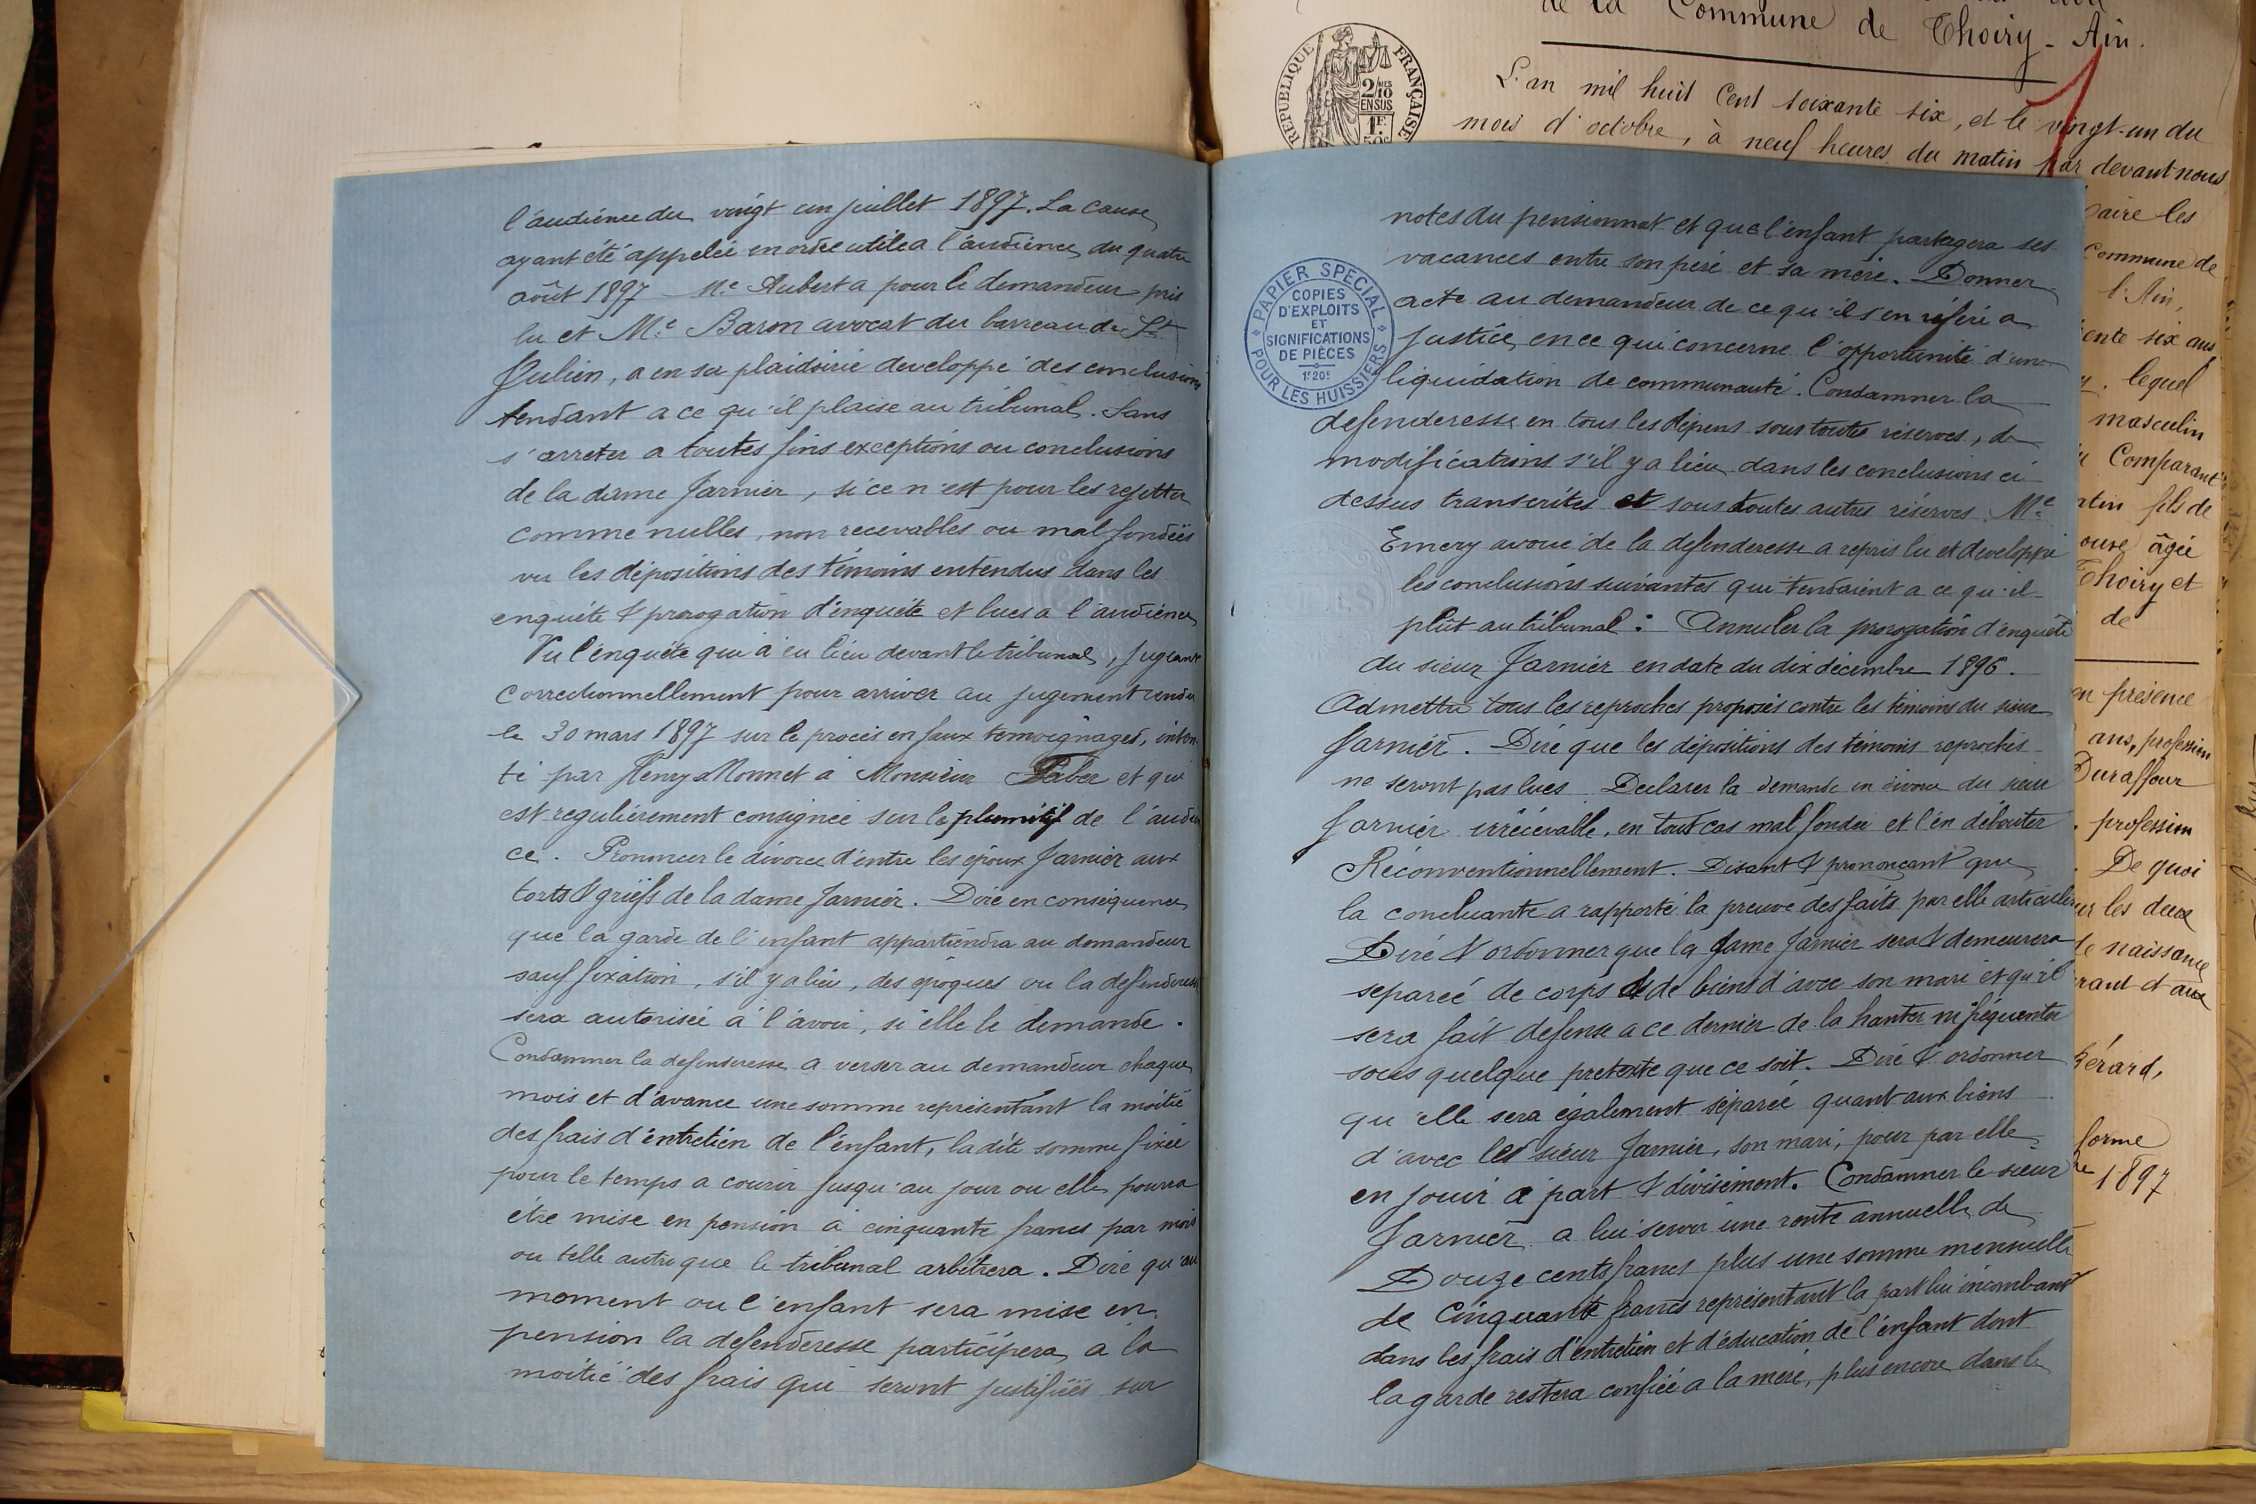 l'audience du vingt un juillet 1897. La cause
ayant été appelée en ordre utile a l'audience du quatre
août 1897 Me Aubert a pour le demandeur pris
lu et Me Baron avocat du barreau de St
Julien, a en sa plaidoirie developpé des conclusions
tendant a ce qu'il plaise au tribunal. Sans
s'arreter a toutes fins exceptions ou conclusions
de la dame Jarnier, si ce n'est pour les rejetter
comme nulles, non recevables ou mal fondées
vu les dépositions des témoins entendus dans les
enquête & prorogation d'enquête et lues a l'audience
Vu l'enquête qui à eu lieu devant le tribunal, jugeant
correctionnellement pour arriver au jugement rendu
le 30 mars 1897 sur le procès en faux temoignages, inten
té par Henry Monnet à Monsieur et qui
est regulièrement consignée sur le plumitif de l'audien
ce. Prononcer le divorce d'entre les époux Jarnier aux
torts & griefs de la dame Jarnier. Dire en conséquence
que la garde de l'enfant appartiendra au demandeur
sauf fixation, s'il y a lieu, des époques ou la defenderesse
sera autorisée à l'avoir, si elle le demande.
Condamner la defenderesse a verser au demandeur chaque
mois et d'avance une somme représentant la moitié
des frais d'entretien de l'enfant, la dite somme fixée
pour le temps a courir jusqu'au jour ou elle pourra
être mise en pension à cinquante francs par mois
ou telle autre que le tribunal arbitrera. Dire qu'au
moment ou l'enfant sera mise en
pension la defenderesse participera a la
moitié des frais qui seront justifiés sur
notes du pensionnat et que l'enfant partagera ses
vacances entre son père et sa mère. Donner
acte au demandeur de ce qu'il s'en réfère a
justice, en ce qui concerne l'opportunité d'une
liquidation de communauté. Condamner la
defenderesse en tous les dépens sous toutes réserves, de
modifications s'il y a lieu dans les conclusions ci
dessus transcrites et sous toutes autres réserves. Me
Emery avoué de la defenderesse a repris lu et developpé
les conclusions suivantes qui tendaient a ce qu'il
plût au tribunal : Annuler la prorogation d'enquête
du sieur Jarnier en date du dix décembre 1896.
Admettre tous les reproches proposés contre les témoins du sieur
Jarnier. Dire que les dépositions des témoins reprochés
ne seront pas lues. Declarer la demande en divorce du sieur
Jarnier irrécevable, en tout cas mal fondée et l'en débouter
Réconventionnellement. Disant & prononçant que
la concluante a rapporté la preuve des faits par elle articulés
Dire & ordonner que la dame Jarnier sera & demeurera
separée de corps & de biens d'avec son mari et qu'il
sera fait defense a ce dernier de la hanter ni fréquenter
sous quelque pretexte que ce soit. Dire & ordonner
qu'elle sera également séparée quant aux biens
d'avec le sieur Jarnier, son mari, pour par elle
en jouir à part & divisément. Condamner le sieur
Jarnier a lui servir une rente annuelle de
Douze cents francs plus une somme mensuelle
de cinquante francs représentant la part lui incombant
dans les frais d'entretien et d'éducation de l'enfant dont
la garde restera confiée a la mère, plus encore dans le
PAPIER SPECIAL
COPIES
D'EXPLOITS
ET
SIGNIFICATIONS
DE PIÈCES
1f20c
POUR LES HUISSIERS
de la Commune de Thoiry - Ain.
RÉPUBLIQUE FRANÇAISE
2/10
EN SUS
1F
50c
L'an mil huit cent soixante six, et le vingt-un du
mois d'octobre, à neuf heures du matin par devant nous
aire les
Commune de
l'Ain,
ente six ans
lequel
masculin
Comparant
atin fils de
ouse âgée
Thoiry et
de
en présence
ans, profession
Duraffour
profession
De quoi
les deux
de naissance
rant d'aux
érard,
forme
1897